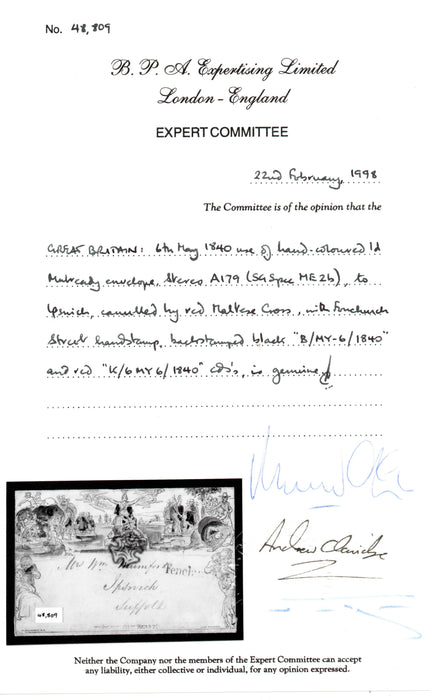 No. 48,809
B. P. A. Expertising Limited
London - England
EXPERT COMMITTEE
22nd February, 1998
The Committee is of the opinion that the
GREAT BRITAIN: 6th May 1840 use of hand-coloured 1d
Mulready envelope, Stereo A179 (SG Spec ME2b), to
Ipswich, cancelled by red Maltese Cross, with Fenchurch
Street handstamp, backstamped black "B/MY-6/1840"
and red "K/6MY6/1840" cds's, is genuine
Andrew Claridge
Mr Wm
Fench
Ipswich
Suffolk
48,809
Neither the Company nor the members of the Expert Committee can accept
any liability, either collective or individual, for any opinion expressed.